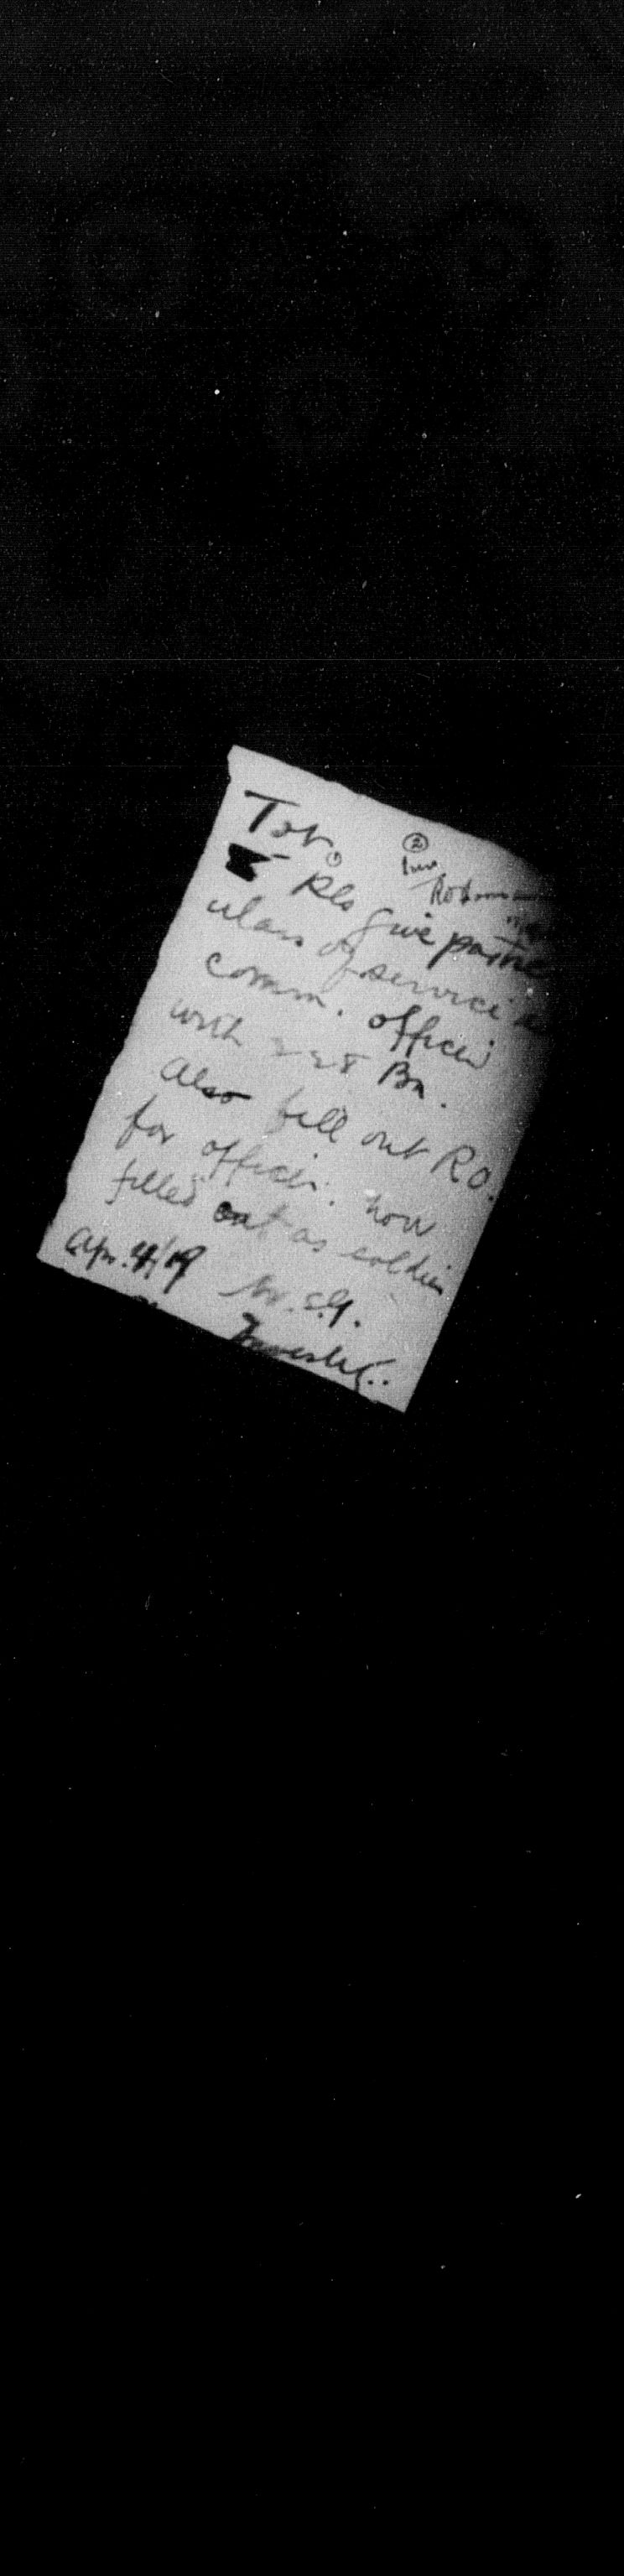 ②
Pls give partic
ulars of service as
comm. officer
with 228 Bn.
Also fill out R.O.
for officer. now
filled out as soldier
Apr. 4/19 W.S.G.